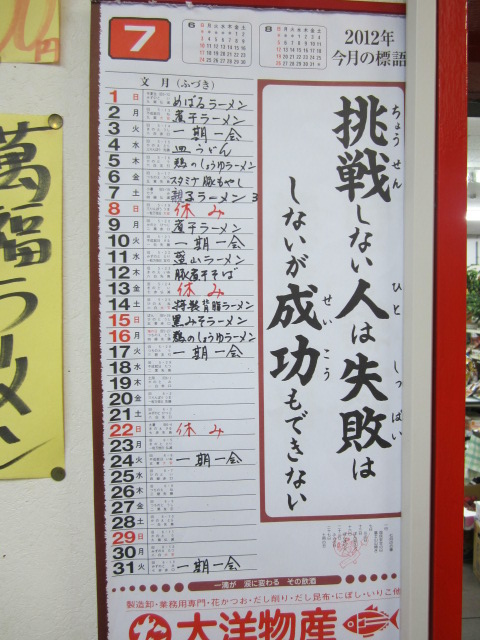 円
萬福ラーメン
7
6
8
2012年
今月の標語
文月(ふづき)
1 日 めばるラーメン
2 月 煮干ラーメン
3 火 一期一会
4 水 皿うどん
5 木 鶏のしょうゆラーメン
6 金 スタミナ豚もやし
7 土 親子ラーメン
8 日 休み
9 月 煮干ラーメン
10 火 一期一会
11 水 葉山ラーメン
12 木 豚煮干そば
13 金 休み
14 土 特製背脂ラーメン
15 日 黒みそラーメン
16 月 鶏のしょうゆラーメン
17 火 一期一会
18 水
19 木
20 金
21 土
22 日 休み
23 月
24 火 一期一会
25 水
26 木
27 金
28 土
29 日
30 月
31 火 一期一会
挑戦しない人は失敗は
ちょうせん ひと しっぱい
しないが成功もできない
せいこう
一滴が 涙に変わる その飲酒
製造卸・業務用専門・花かつお・だし削り・だし昆布・にぼし・いりこ他
大洋物産